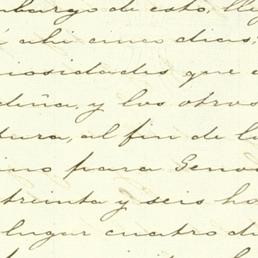 mbargo de esto, lle
ahi cinco dias;
iosidades que
deña, y los otros
tura, al fin de la
ino para Genov
treinta y seis ho
lugar cuatro di